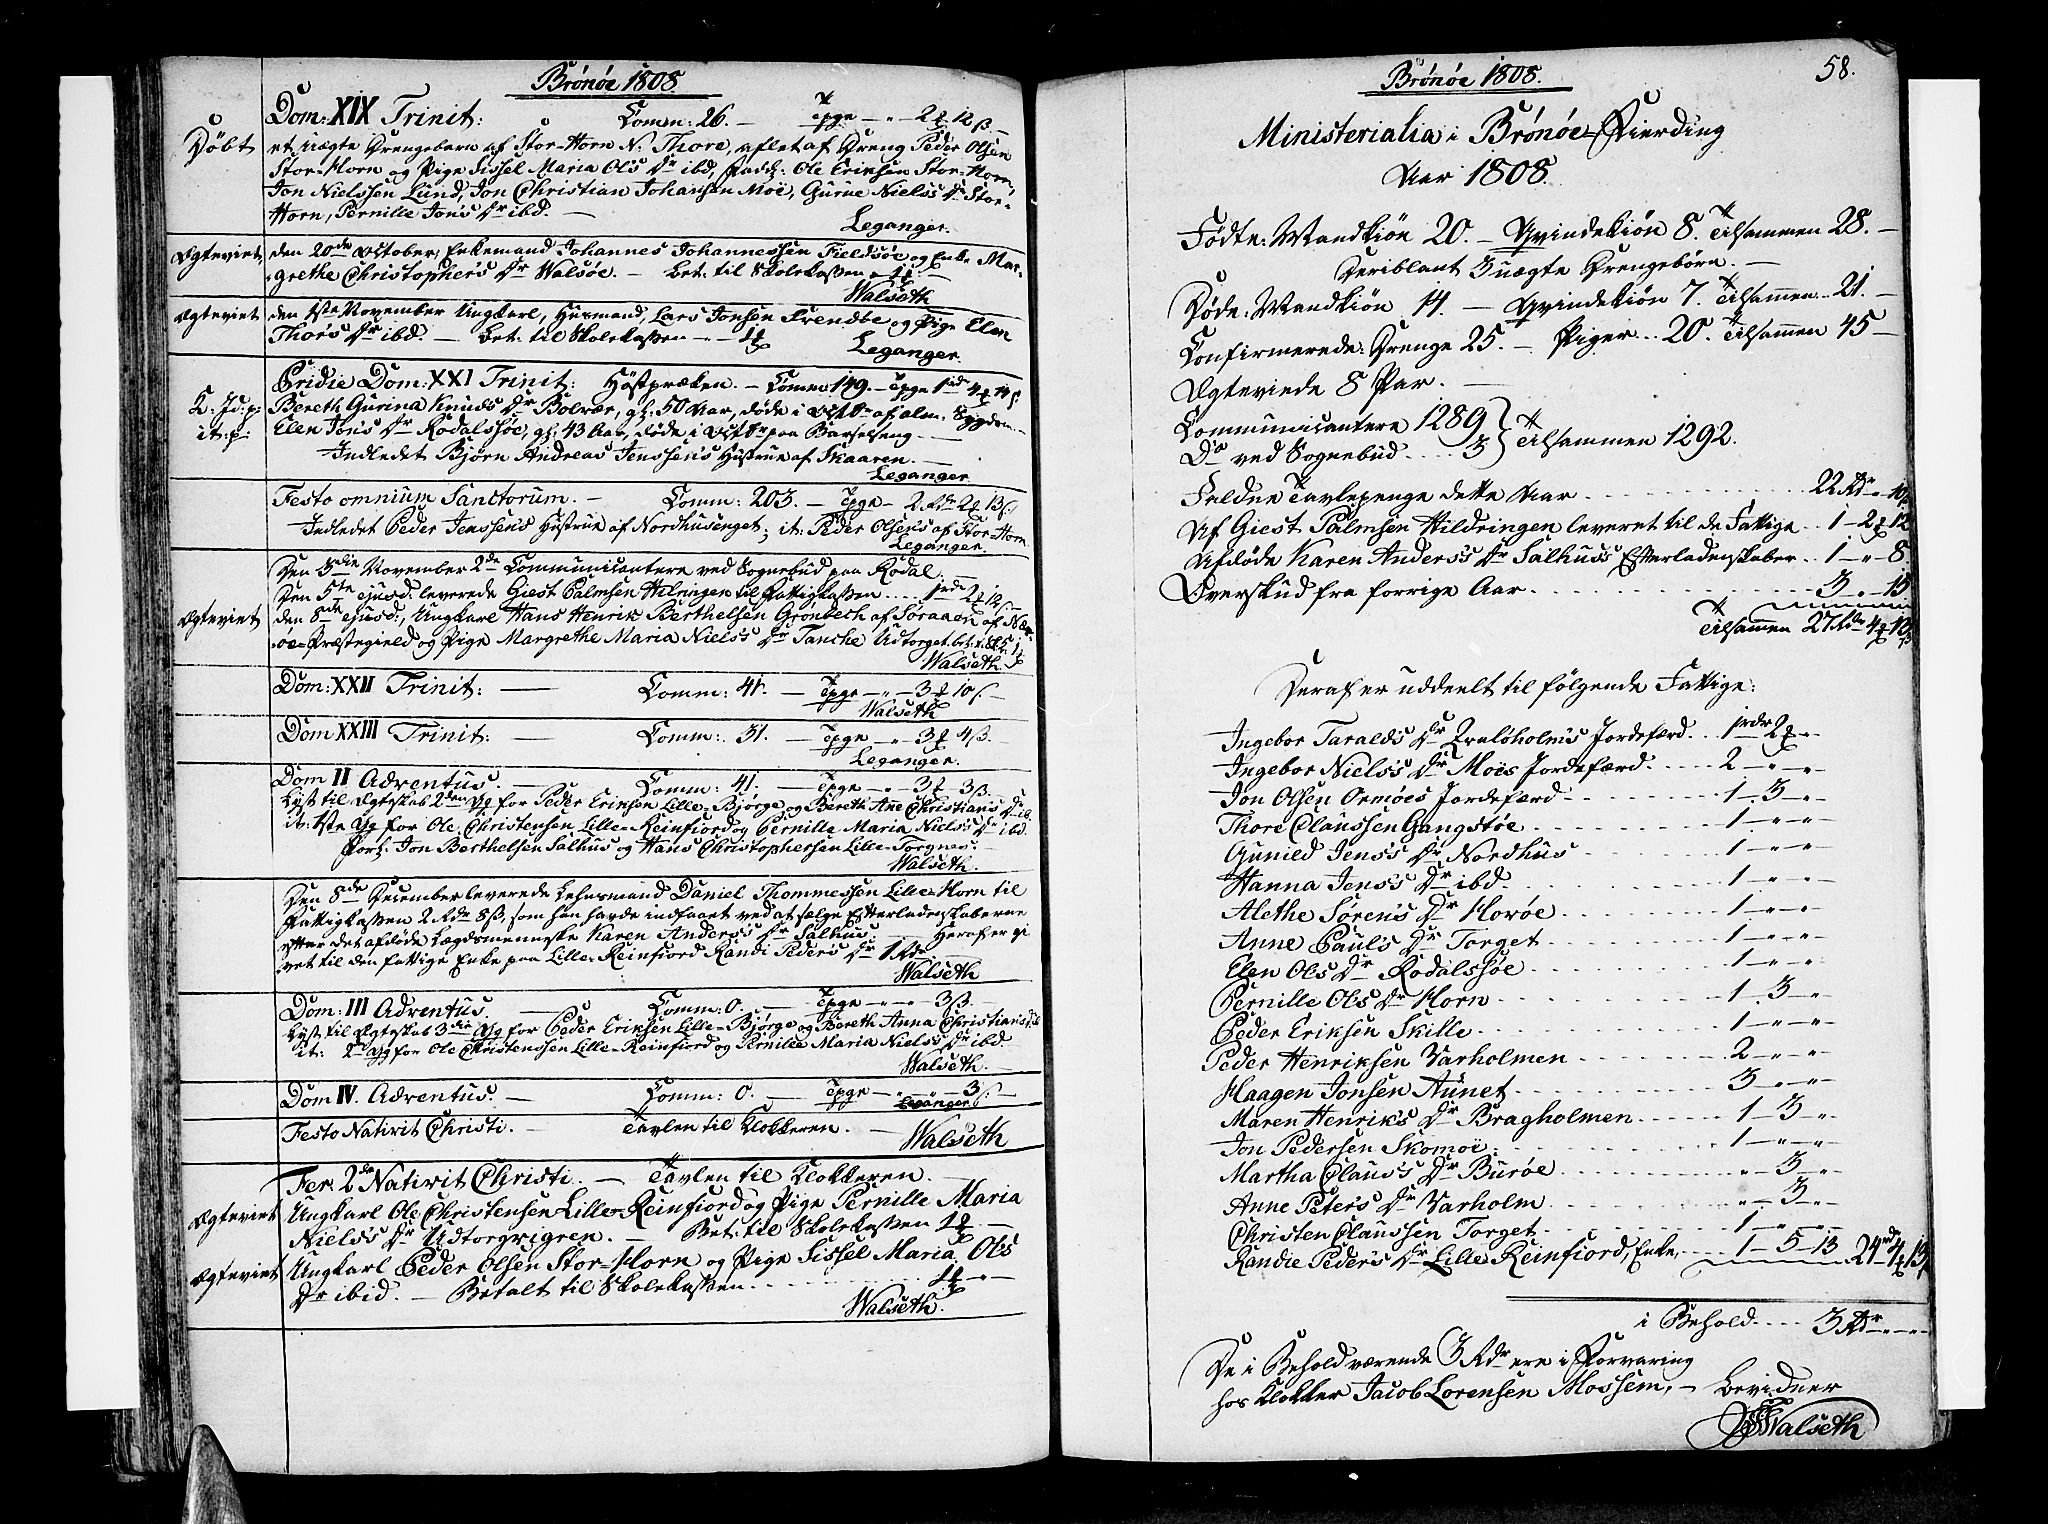 Brónóe 1808.
Dom: XIX Trinit: Comm: 26. — Tpge — „ — 2 12 ß —
Döbt
et uægte Drengebarn af Stor-Horn N. Thore, aflet af Dreng Peder Olsen
Stor-Horn og Pige Sissel Maria Ols Dr ibd, Fadd: Ole Eriksen Stor-Horn,
Jon Nielssen Lund, Jon Christian Johansen Moe, Gurue Niels's Dr Stor-
Horn, Pernille Jon's Dr ibd. —
Leganger.
Ægteviet,
den 20de October, Enkemand Johannes Johannessen Fieldsöe og Enke Mar-
grethe Christopher's Dr Walsöe. — bet: til Skolekassen „ 1
Walseth
Ægteviet
den 1ste November Ungkarl, Husmand, Lars Jonsen Trendbe og Pige Elen
Thor's Dr ibd. — bet: til Skolekassen — „ — 1
Leganger.
Pridie Dom: XXI Trinit: Höstpræken. — Comm 149. — Tpge 1rd 4 14 ß:
K: Jd: p:
Bereth Gurina Knuds Dr Bolvær, gl. 50 Aar, döde i Octbr af alm. Sygdom —
it: p:
Elen Jon's Dr Rodalssöe, gl. 43 Aar, döde i Octbr paa Barselseng. —
Indledet Bjørn Andreas Jenssen's Hustrue af Skaaren. —
Leganger
Festo omnium Sanctorum. — Comm: 203. — Tpge — 2 Rdr 2 13 ß.
Indledet Peder Jenssen's Hustrue af Nordhusenget; it: Peder Olsen's af Stor-Horn
Leganger.
Den 3die November 2de Communicantere ved Sognebud paa Rodal.
Den 5te ejusd. leverede Giest Palmsen Hilringen til Fattigkassen .... 1rd 2 12 ß —
Ægteviet
den 8de ejusd:, Ungkarl Hans Henrik Berthelsen Grönbech af Söraaen af Nær-
öe-Præstegield og Pige Margrethe Maria Niels's Dr Tanche Udtorget. bet: t: Sk: k: 1
Walseth.
Dom: XXII Trinit: — Comm: 41. — Tpge — „ — 3 10 ß —
Walseth
Dom XXIII Trinit: — Comm: 31. — Tpge — „ 3 4 ß. —
Leganger.
Dom II Adventus. — Comm: 41. — Tpge — „ — 3 3 ß. —
Lyst til Ægteskab 2den Gg for Peder Eriksen Lille-Bjørge og Bereth Ane Christians Dr ib.
it: 1ste Gg for Ole Christensen Lille-Reinfiord og Pernille Maria Niels's Dr ibd.
Forl: Jon Berthelsen Salhus og Hans Christophersen Lille-Torgnes:
Walseth.
Den 8de December leverede Lehnsmand Daniel Thommessen Lille-Horn til
Fattigkassen 2 Rdr 8 ß, som han havde indfaaet ved at sælge Efterladenskaberne
efter det afdöde Lægdsmenneske Karen Anders's Dr Salhus: — Heraf er gi-
vet til den fattige Enke paa Lille-Reinfiord Randi Peder's Dr 1 Rdr —
Walseth
Dom: III Adventus. — Comm: 0. — Tpge — „ — 3 ß. —
Lyst til Ægteskab 3die Gg for Peder Eriksen Lille-Bjørge og Bereth Anna Christians Dr ib
it: 2den Gg for Ole Christenssen Lille-Reinfiord og Pernille Maria Niels's Dr ibd.
Walseth. —
Dom IV. Adventus. — Comm: 0. — Tpge — „ — 3 ß. —
Leganger
Festo Nativit Christi. — Tavlen til Klokkeren. —
Walseth
Fer. 2da Nativit Christi. — Tavlen til Klokkeren. —
Ægteviet
Ungkarl Ole Christensen Lille-Reinfiord og Pige Pernille Maria
Niels's Dr Udtorgvigren. — Bet: til Skolekassen 1 —
Ægteviet
Ungkarl Peder Olsen Stor-Horn og Pige Sissel Maria Ols
Dr ibid. — Betalt til Skolekassen. . . . . . . . . 1 — „ —
Walseth.
Brónóe 1808.
58.
Ministerialia i Brónóe-Fierding
Aar 1808.
Födte: Mandkiön 20. — Qvindekiön 8. Tilsammen 28. —
Deriblant 3 uægte Drengebörn. —
Döde: Mandkiön 14. — Qvindekiön 7. Tilsammen .. 21. —
Confirmerede: Drenge 25. — Piger ... 20. Tilsammen 45 —
Ægteviede 8 Par. —
Communicantere 1289
Do ved Sognebud .... 3 } Tilsammen 1292.
Faldne Tavlepenge dette Aar . . . . . . . . . 22 Rdr „ 10
Af Giest Palmsen Hildringen leveret til de Fattige .. 1 — 2 12
Afdöde Karen Anders's Dr Salhus's Efterladenskaber .. 1 — „ — 8.
Overskud fra forrige Aar . . . . . . . . . 3 „ — 15
Tilsammen 27 Rdr 4 13 ß
Deraf er uddeelt til fölgende Fattige:
Ingebor Taralds Dr Jordefærd .. 1rdr 2 „ —
Ingebor Niels's Dr Moe's Jordefærd . . . . 2 — „ — „ —
Jon Olsen Ormöes Jordefærd . . . . . 1 . 3 — „ —
Thore Claussen Gangstöe . . . . . 1 — „ — „ —
Gunild Jens's Dr Nordhus . . . . . 1 — „ — „ —
Hanna Jens's Dr ibd. . . . . . 1 — „ — „ —
Alethe Sören's Dr Horöe . . . . . 1 — „ — „ —
Anne Paul's Dr Torget . . . . . 1 — „ — „ —
Elen Ols Dr Rodalssöe . . . . . 1 — „ — „ —
Pernille Ols Dr Horn . . . . . 1 . 3 — „ —
Peder Eriksen Skille . . . . . 1 — „ — „ —
Peder Henriksen Varholmen . . . . . 2 — „ — „ —
Haagen Jonsen Aunet . . . . . 3 — „ — „ —
Maren Henrik's Dr Bragholmen . . . . . 1 — 3 — „ —
Jon Pedersen Skomoe . . . . . 1 — „ — „ —
Martha Claus's Dr Buröe . . . . . „ — 3 — „ —
Anne Peter's Dr Varholm . . . . . „ — 3 — „ —
Christen Claussen Torget . . . . . 1 — „ — „ —
Randie Peder's Dr Lille Reinfiord, Enke, . . . . 1 — 5 — 13 24rdr 4 13
i Behold .... 3 Rdr „ — „ —
De i Behold værende 3 Rdr ere i Forvaring
hos Klokker Jacob Lorensen Mossem, — bevidner
Walseth